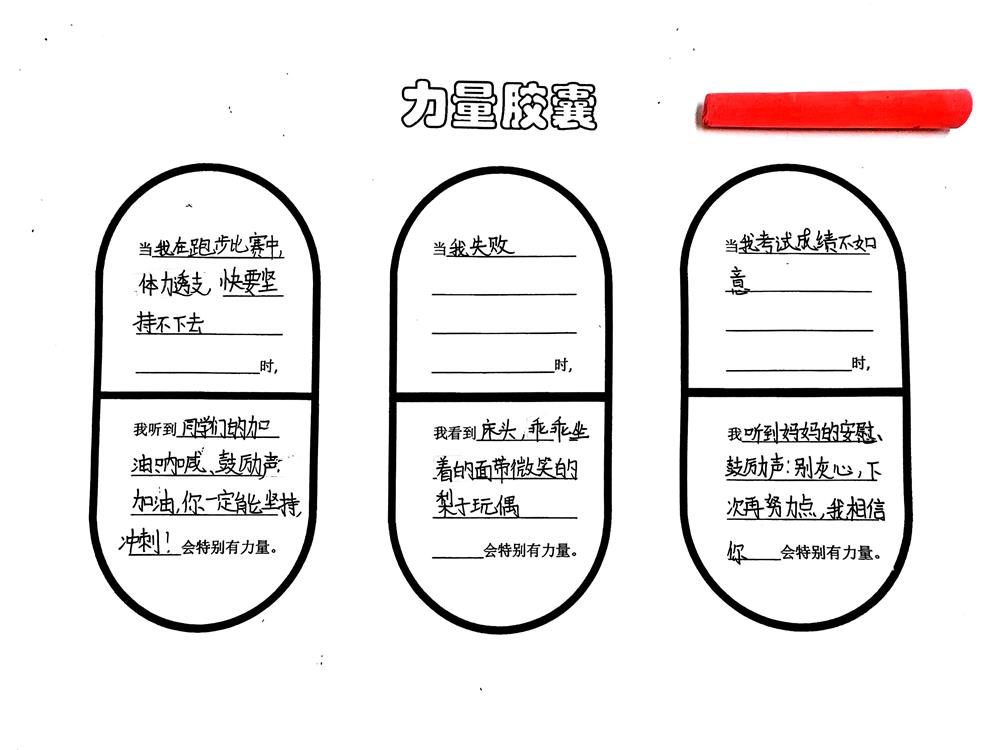 力量胶囊
当我在跑步比赛中,
体力透支,快要坚
持不下去
时,
我听到同学们的加
油呐喊、鼓励声:
加油,你一定能坚持,
冲刺!会特别有力量。
当我失败
时,
我看到床头,乖乖坐
着的面带微笑的
梨子玩偶
会特别有力量。
当我考试成绩不如
意
时,
我听到妈妈的安慰、
鼓励声:别灰心,下
次再努力点,我相信
你会特别有力量。